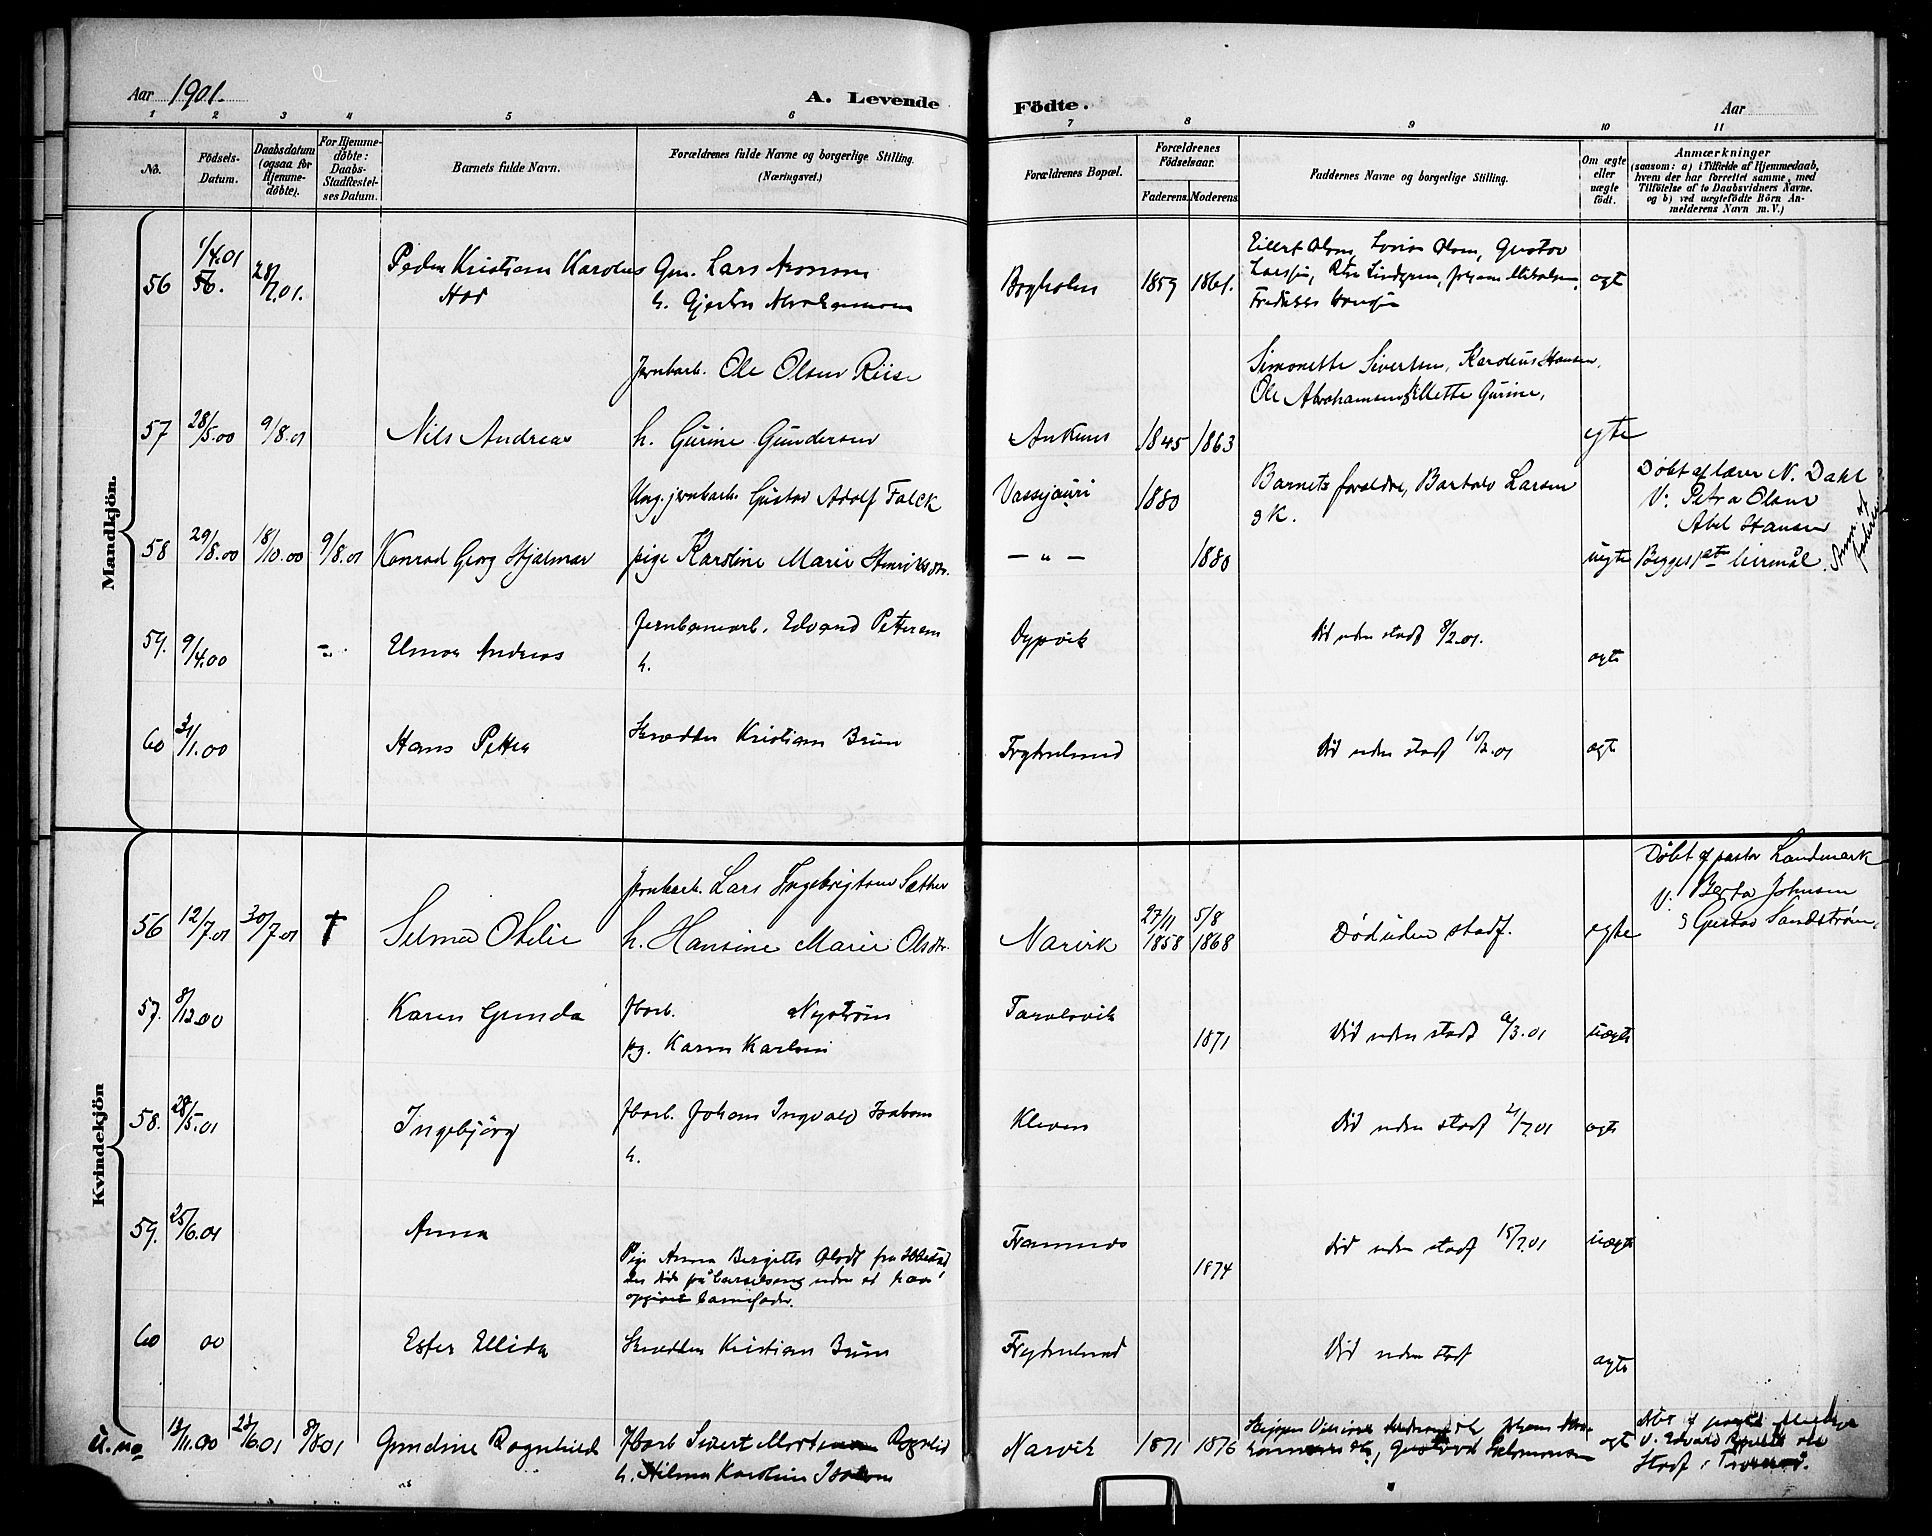 Aar 1901.
A. Levende
Födte.
Aar
1 2 3 4 5 6 7 8 9 10 11
No.
Födsels-
Datum.
Daabsdatum
(ogsaa for
Hjemme-
döbte).
For Hjemme-
döbte:
Daabs-
Stadfæstel-
ses Datum.
Barnets fulde Navn.
Forældrenes fulde Navne og borgerlige Stilling.
(Næringsvei.)
Forældrenes Bopæl.
Forældrenes
Födselsaar.
Faderens. Moderens.
Faddernes Navne og borgerlige Stilling.
Om ægte
eller
uægte
födt.
Anmærkninger
(saasom: a) i Tilfælde af Hjemmedaab,
hvem der har forrettet samme, med
Tilföielse af to Daabsvidners Navne.
og b) ved uægtefödte Börn An-
melderens Navn m. V.)
Mandkjön.
56 1/4.01 28/7.01. Peder Kristian Karolus Gm. Lars
h.
1859 1861.
57 28/5.00 9/8.01 Nils Andreas
Jernbarb. Ole Olsen Riise
h. Gurine Gundersen
Ankenes 1845 1863
Simonette Sivertsen, Karolius Hansen,
Ole Abrahamsen, Mette Gurine,
egte
58 29/8.00 18/10.00 9/8.01 Konrad Georg Hjalmar
Ung. jernbarb. Gustav Adolf Falck
pige Karoline Marie Henriksdtr.
Vassijauri 1880
— „ — 1880
Barnets forældre, Bartolo Larsen
& K.
uegte
Døbt af lærer N. Dahl
V: Petra Olsen
Abel Hansen
Begges 1ste leirmål.
59. 9/4.00 Andreas
Jernbanearb. Edvard Pettersen
h.
Dypvik
Död uden stadf 8/2.01.
ægte
60 3/1.00 Hans Petter
Skrædder Kristian Brun
Frydenlund
Död uden stadf 10/2.01
ægte
Kvindekjön
56 12/7.01 30/7.01 † Selma Otelie
Jernbarb. Lars Ingebrigtsen Sæther
h. Hansine Marie Olsdtr.
Narvik 27/11 1858 5/8 1868
Død uden stadf.
egte
Døbt af pastor Landmark
V: Berta Johnsen
& Gustav Sandstrøm.
57. 8/12.00 Karen Gunda
Jbarb. Nyström
pg. Karen Karlsen
Taraldsvik 1871
Död uden stadf /3.01
uægte
58. 28/5.01 Ingebjörg
Jbarb. Johan Ingvald Isaksen
h.
Kleven
Död uden stadf 21/7.01
ægte
59. 25/6.01 Anna
Pige Anna Bergitte Olsdt fra Ibbestad
der döde på barselseng uden at have
opgivet barnefader.
Framnes 1874
död uden stadf 15/7.01
uægte
60 00 Ester Ellida
Skrædder Kristian Brun
Frydenlund
Död uden stadf
ægte
u. no 12/11.00 23/6.01 8/8.01 Gundine Ragnhild
Jbarb Sivert
h. Hilma Karoline Isaksen
Narvik 1871 1876
ægt